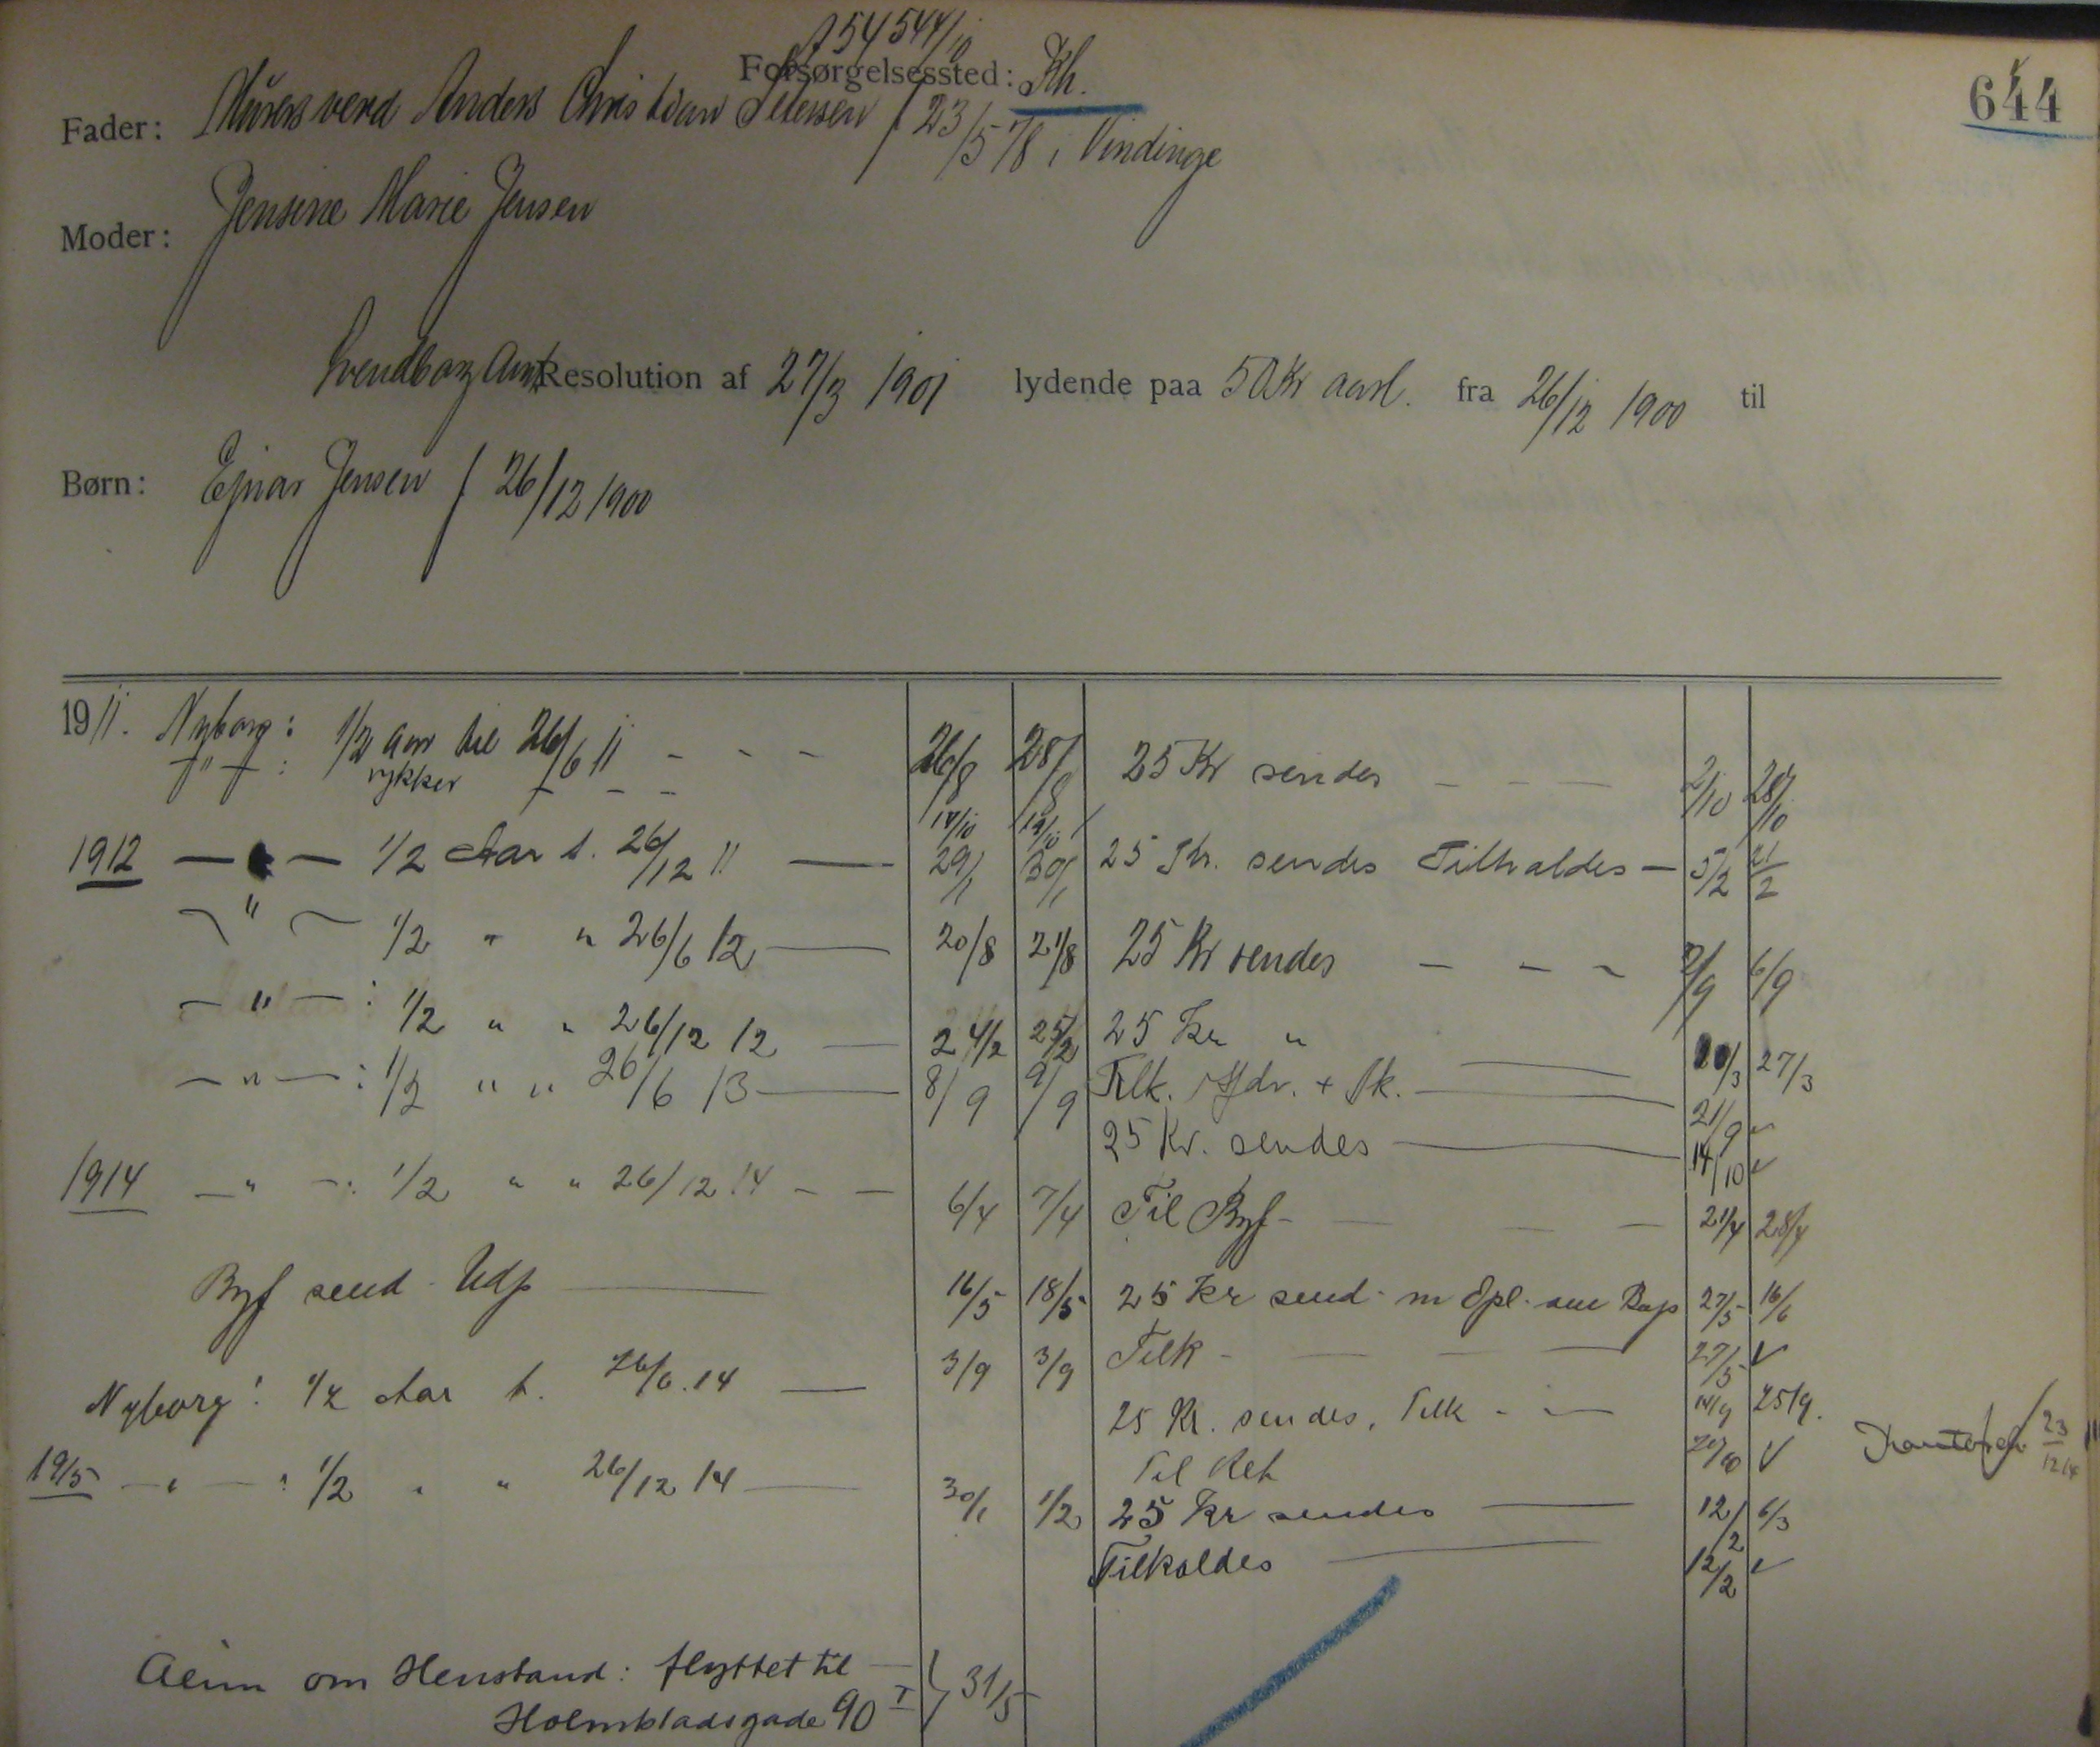 A 54544/10
Forsørgelsessted: Kh.
644
Fader: Murersvend Anders Christian Petersen f 23/5 78 i Vindinge
Moder: Jensine Marie Jensen
Svendborg Amts Resolution af 27/3 1901 lydende paa 50 Kr aarl. fra 26/12 1900 til
Børn: Ejnar Jensen f 26/12 1900
1911. Nyborg: 1/2 Aar til 26/6 11 - - - 26/8 28/8 25 Kr sendes - - - 2/10 28/10
-"- : rykker - - - 14/10 14/10
1912 — " — 1/2 Aar t. 26/12 11 — 29/1 30/1 25 Kr. sendes Tilholdes — 5/2 21/2
— " — 1/2 " " 26/6 12 — 20/8 21/8 25 Kr sendes - - - 2/9 6/9
— " — : 1/2 " " 26/12 12 — 24/2 25/2 25 Kr " — 20/3 27/3
— " — : 1/2 " " 26/6 13 — 8/9 9/9 Tilk. — 21/9 ✓
25 Kr. sendes — 14/10 ✓
1914 — " — : 1/2 " " 26/12 14 - - 6/4 7/4 Til Byf - - - 21/4 28/4
Byf send Udp — 16/5 18/5 25 Kr send m Opl. 27/5 16/6
Tilk - - - 27/5 ✓
Nyborg: 1/2 Aar t. 26/6. 14 — 3/9 3/9 25 Kr. sendes, Tilk - - 25/9.
Til Ret ✓ 23/12 14
1915 — " — : 1/2 " " 26/12 14 — 30/1 1/2 25 Kr sendes — 12/2 6/3
Tilkaldes — 12/2 ✓
om Henstand: flyttet til —
Holmbladsgade 90 I } 31/5